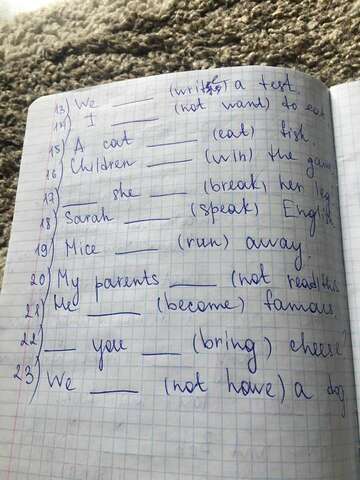 13) We ____ (write) a test.
14) I ____ (not want) to eat
15) A cat ____ (eat) fish.
16) Children ____ (win) the game
17) ___ she ___ (break) her leg
18) Sarah ____ (speak) English
19) Mice ____ (run) away.
20) My parents ____ (not read) this
21) He ____ (become) famous
22) ___ you ___ (bring) cheese
23) We ____ (not have) a dog